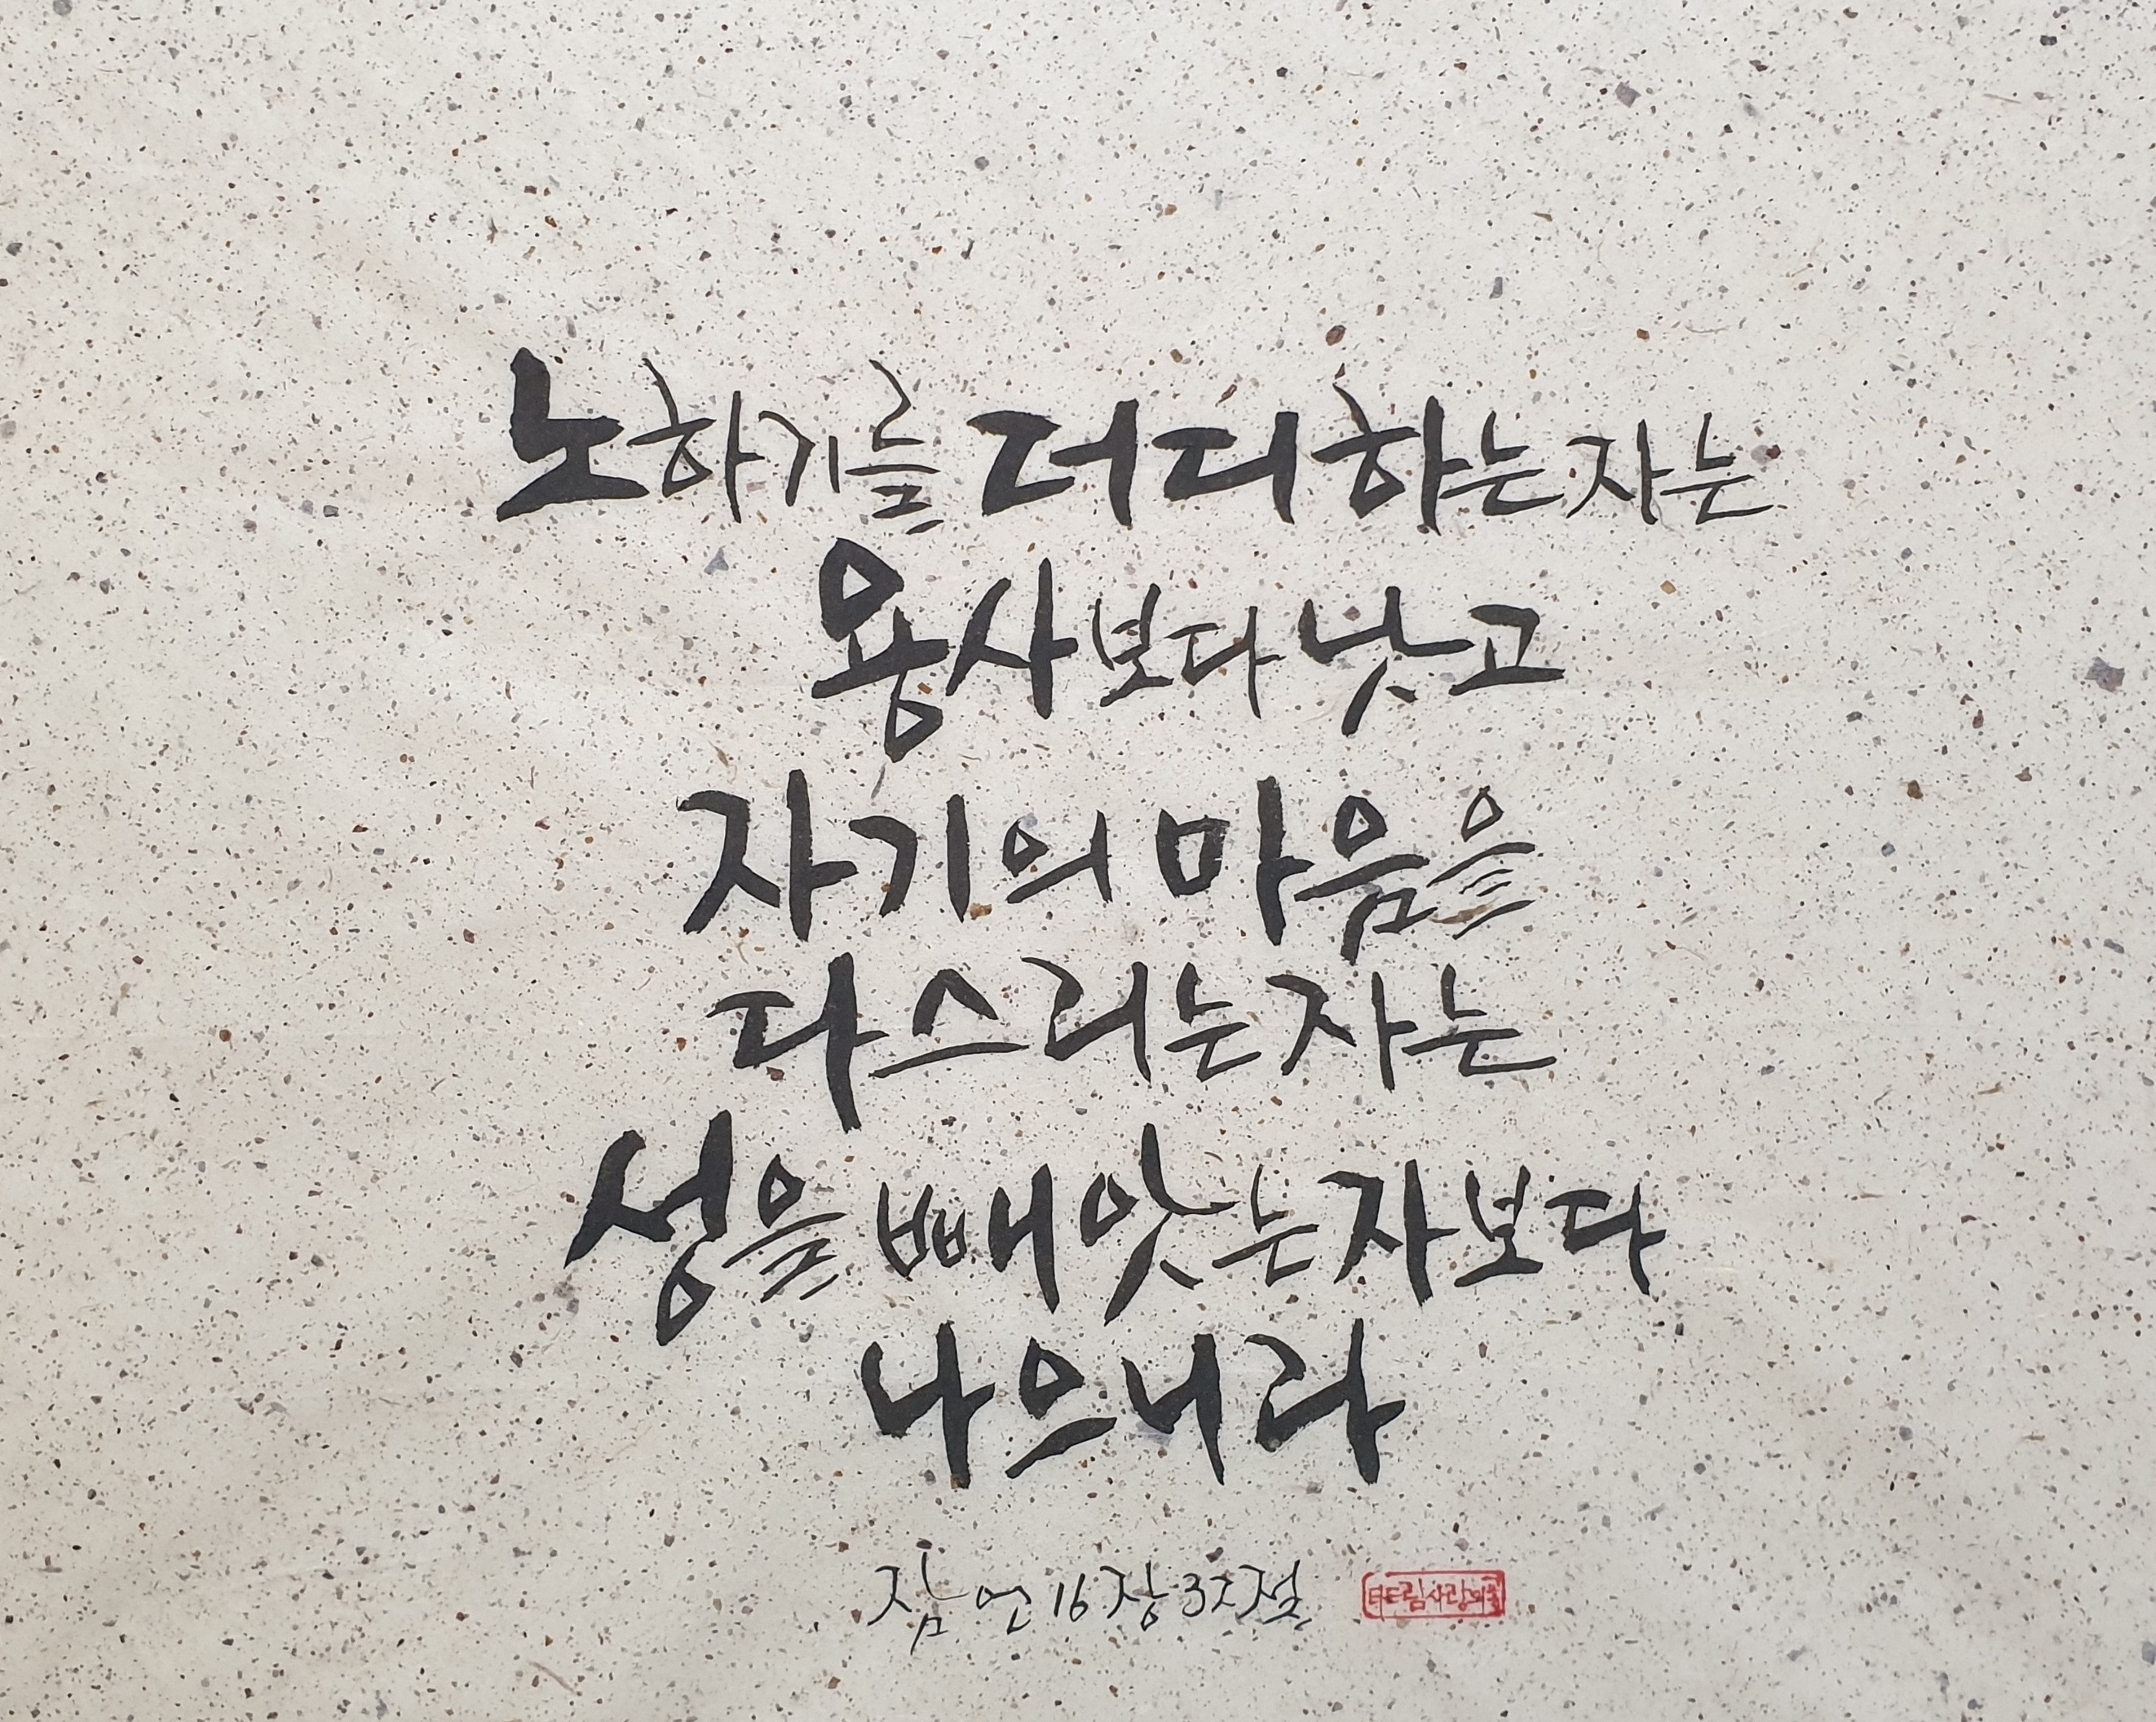 노하기를 더디 하는 자는
용사보다 낫고
자기의 마음을
다스리는 자는
성을 빼앗는 자보다
나으니라
잠언 16장 32절